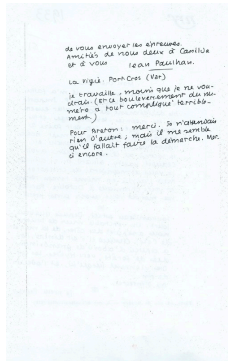 de vous envoyer les épreuves.
Amitiés de nous deux à Camille
et à vous
Jean Paulhan.
La Vigie. Port-Cros (Var)
je travaille, moins que je ne vou-
drais. (Et le bouleversement du nu-
méro a tout compliqué terrible-
ment.)
Pour Breton: merci. Je n'attendais
rien d'autre, mais il me semble
qu'il fallait faire la démarche. Mer-
ci encore.